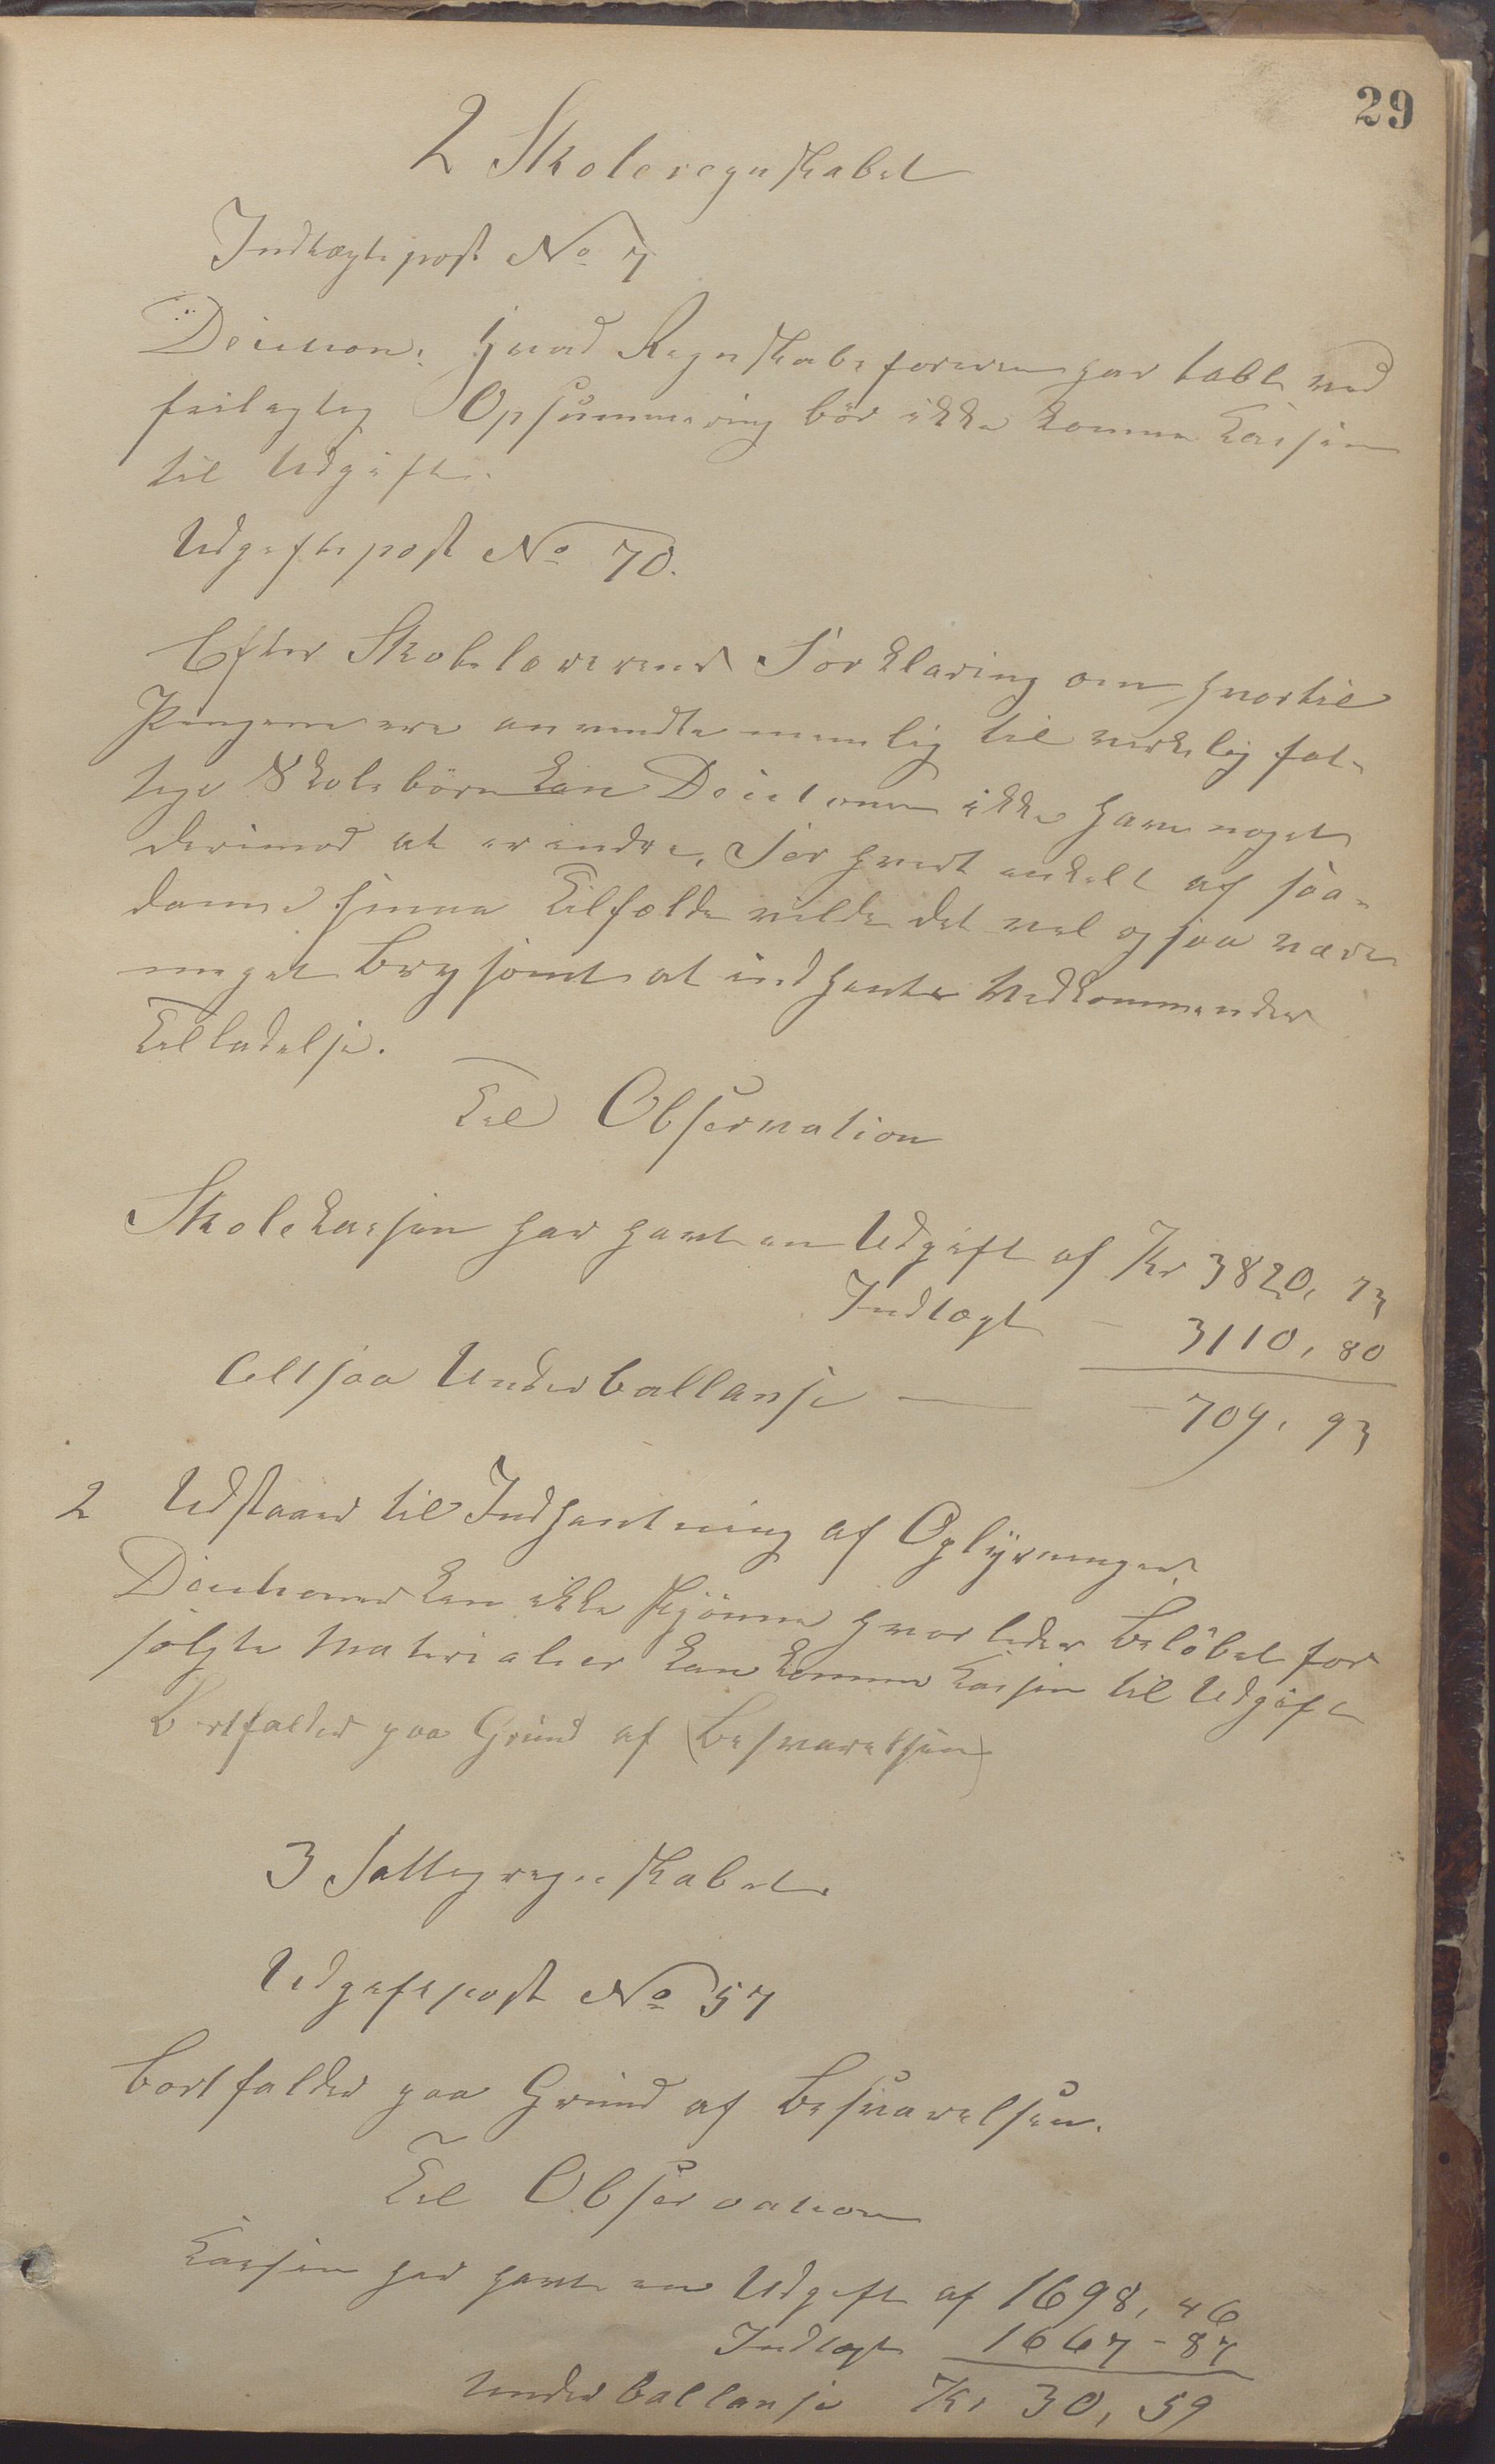 29
2 Skoleregnskabet
Indtægtspost No 7
Decision: Hvad Regnskabsføreren har tabt ved
feilagtig Opsummering bör ikke komme Kassen
til Udgift.
Udgiftspost No 70.
Efter Skolelærerens Forklaring om hvortil
Pengene ere anvendte nemlig til virkelig fat-
tige Skolebörn kan Decisionen ikke have noget
derimod at erindre, For hvert enkelt af saa-
danne smaa Tilfælde vilde det vel ogsaa være
meget brysomt at indhente Vedkommendes
Tilladelse.
Til Observation
Skolekassen har havt en Udgift af Kr 3820, 73
Indtægt - 3110, 80
Altsaa Underballanse - 709, 93
2 Udstaar til Indhentning af Oplysninger
Decisionen kan ikke skjönne hvorledes Belöbet for
solgte Materialier kan komme Kassen til Udgift
Bortfalder paa Grund af (Besvarelsen)
3 Fattigregnskabet.
Udgiftspost No 57
Bortfalder paa Grund af Besvarelsen.
Til Observation
Kassen har havt en Udgift af 1698, 46
Indtægt 1667 - 87
Underballanse Kr 30, 59